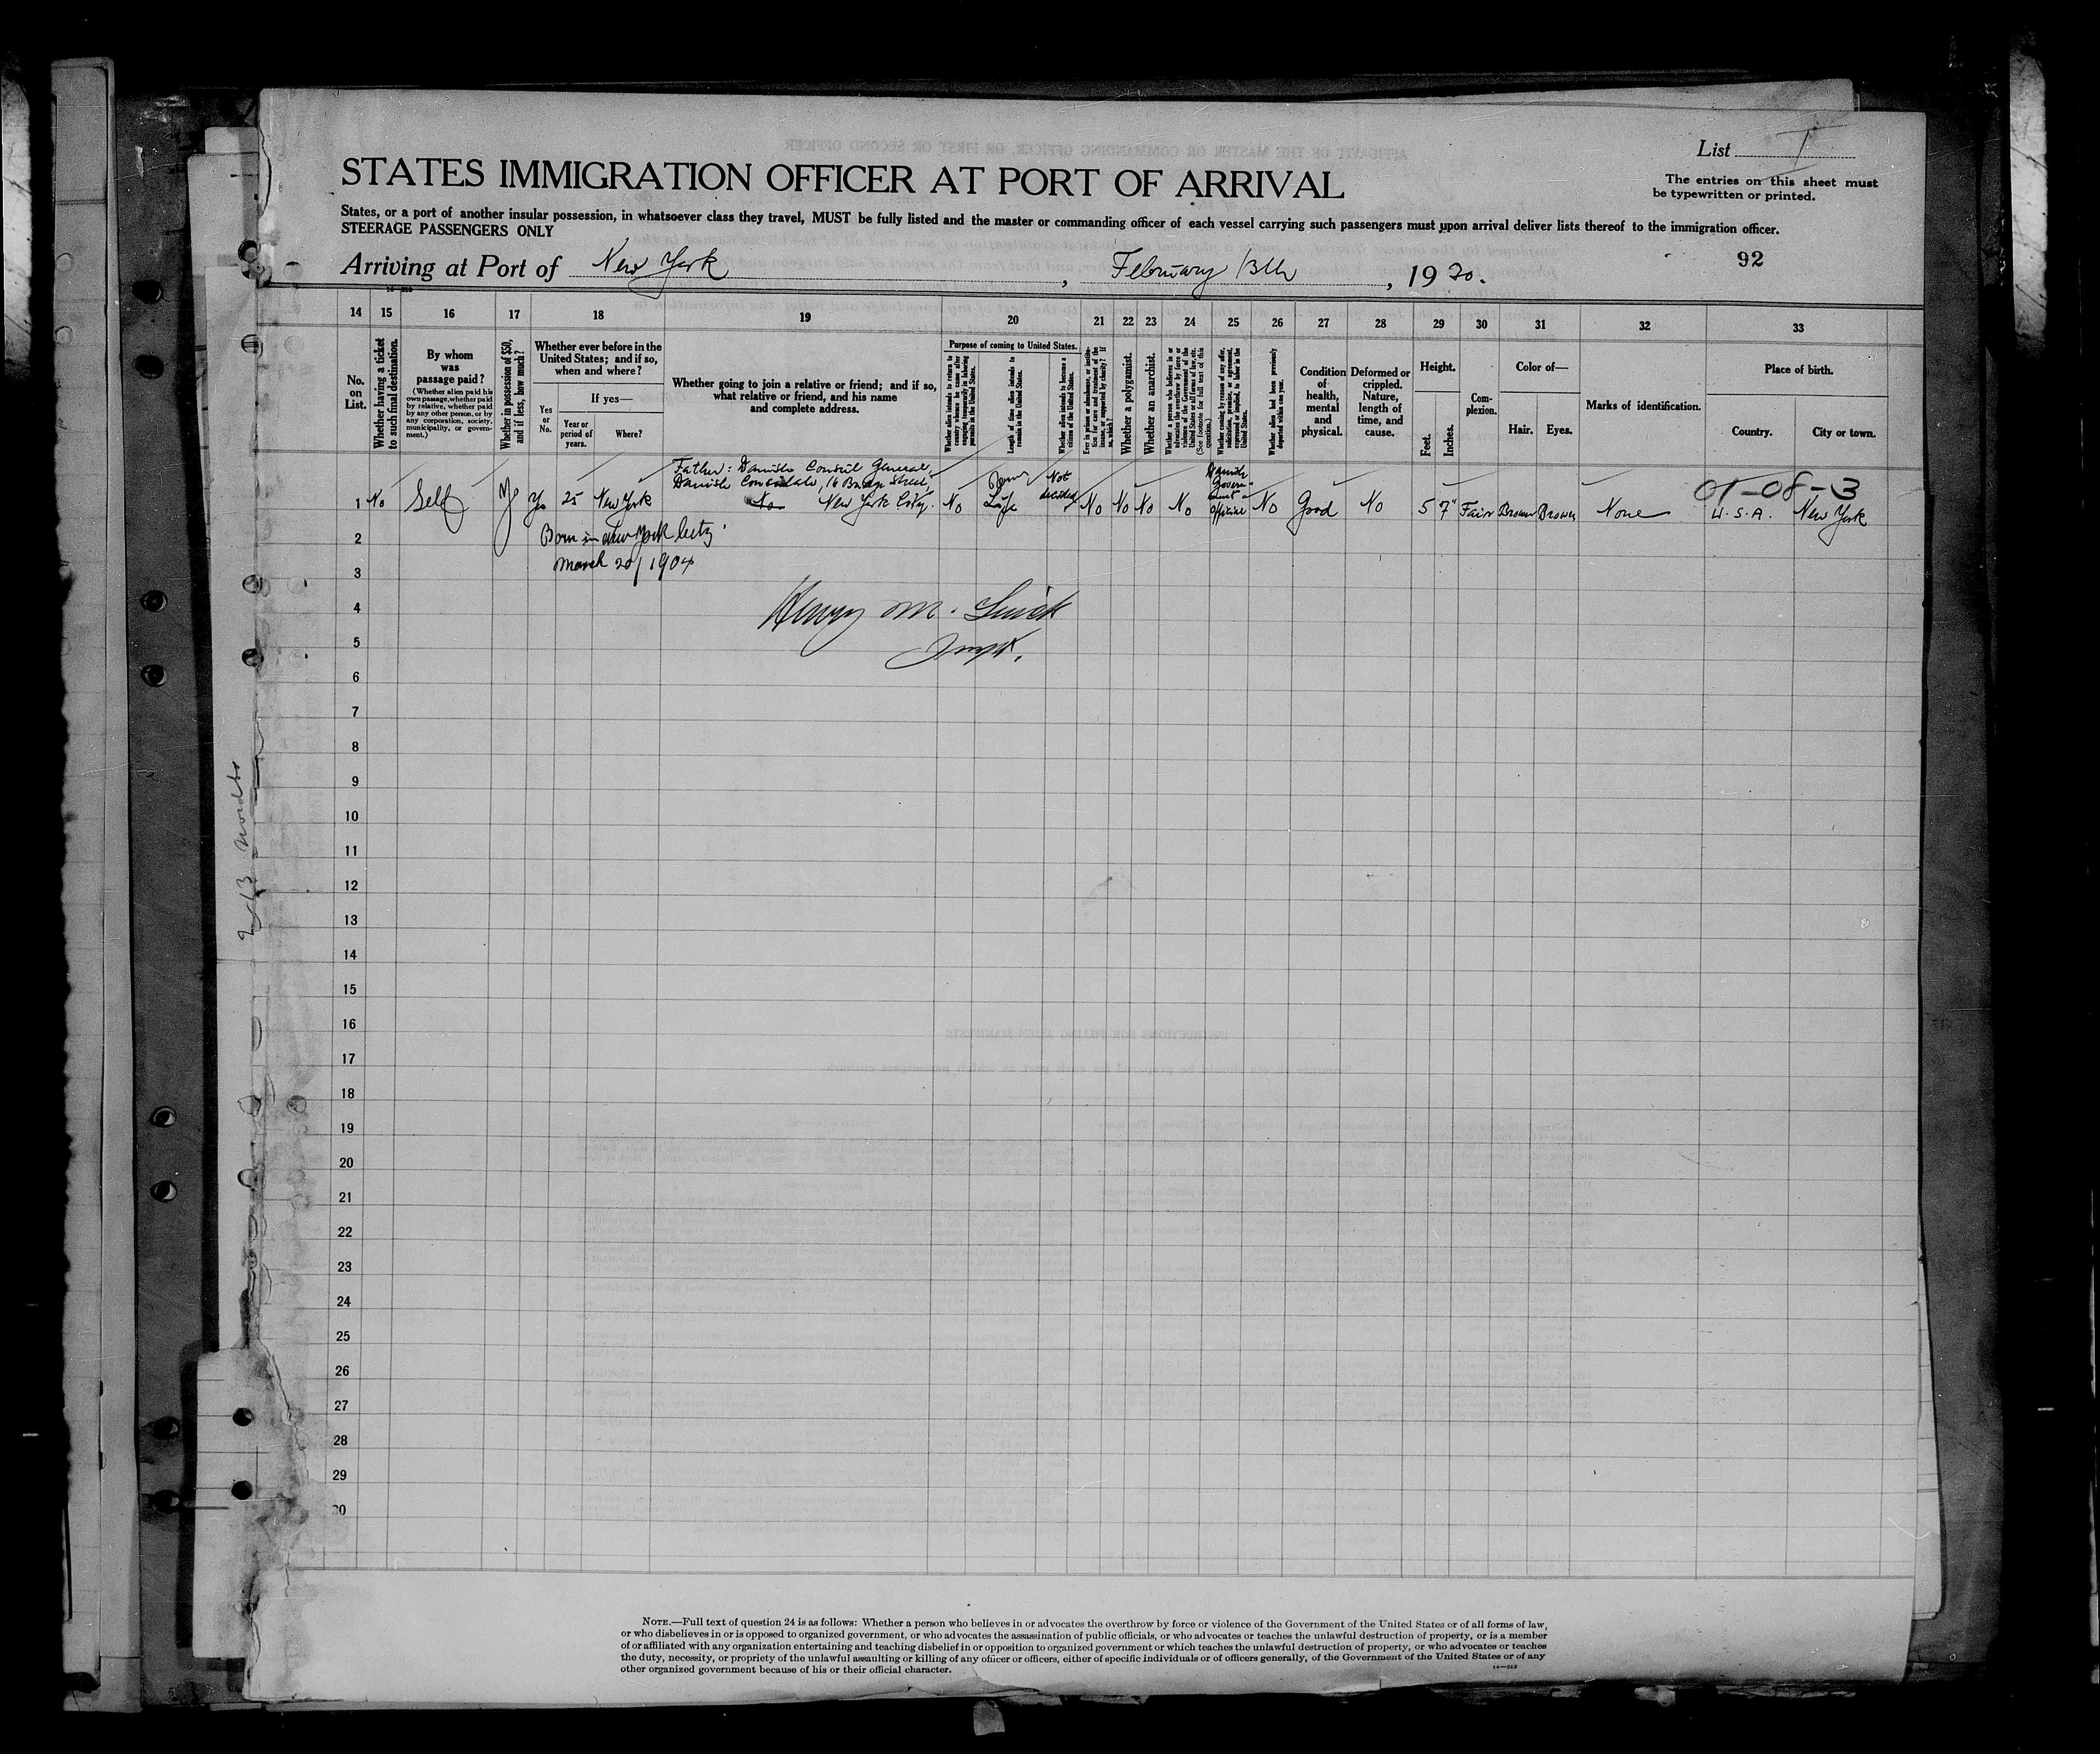 List I
STATES IMMIGRATION OFFICER AT PORT OF ARRIVAL
The entries on this sheet must
be typewritten or printed.
States, or a port of another insular possession, in whatsoever class they travel, MUST be fully listed and the master or commanding officer of each vessel carrying such passengers must upon arrival deliver lists thereof to the immigration officer.
STEERAGE PASSENGERS ONLY
92
Arriving at Port of New York, February 13th, 1920.
14 15 16 17 18 19 20 21 22 23 24 25 26 27 28 29 30 31 32 33
No. on List.
Whether having a ticket to such final destination.
By whom was passage paid?
(Whether alien paid his own passage, whether paid by relative, whether paid by any other person, or by any corporation, society, municipality, or government.)
Whether in possession of $50, and if less, how much?
Whether ever before in the United States; and if so, when and where?
Yes or No.
If yes—
Year or period of years.
Where?
Whether going to join a relative or friend; and if so, what relative or friend, and his name and complete address.
Purpose of coming to United States.
Whether alien intends to return to country whence he came after engaging temporarily in laboring pursuits in the United States.
Length of time alien intends to remain in the United States.
Whether alien intends to become a citizen of the United States.
Ever in prison or almshouse, or institution for care and treatment of the insane, or supported by charity? If so, which?
Whether a polygamist.
Whether an anarchist.
Whether a person who believes in or advocates the overthrow by force or violence of the Government of the United States or all forms of law, etc. (See footnote for full text of this question.)
Whether coming by reason of any offer, solicitation, promise, or agreement, expressed or implied, to labor in the United States.
Whether alien had been previously deported within one year.
Condition of health, mental and physical.
Deformed or crippled. Nature, length of time, and cause.
Height.
Feet.
Inches.
Complexion.
Color of—
Hair.
Eyes.
Marks of identification.
Place of birth.
Country.
City or town.
Father: Danish Consul General,
Danish Consulate, 16 Bridge Street,
01-08-3
1 No Self Yes 25 New York No New York City. No Life Not decided No No No No Danish Government Official No Good No 5 7" Fair Brown Brown None U.S.A. New York
2 Born in New York City
3 March 20/1904
4 Henry M.
5 Insp.
6
7
8
9
10
11
12
13
14
15
16
17
18
19
20
21
22
23
24
25
26
27
28
29
30
2/13
NOTE.—Full text of question 24 is as follows: Whether a person who believes in or advocates the overthrow by force or violence of the Government of the United States or of all forms of law,
or who disbelieves in or is opposed to organized government, or who advocates the assassination of public officials, or who advocates or teaches the unlawful destruction of property, or is a member
of or affiliated with any organization entertaining and teaching disbelief in or opposition to organized government or which teaches the unlawful destruction of property, or who advocates or teaches
the duty, necessity, or propriety of the unlawful assaulting or killing of any officer or officers, either of specific individuals or of officers generally, of the Government of the United States or of any
other organized government because of his or their official character.